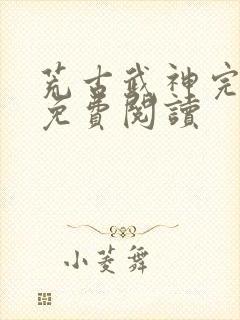 荒古武神完
免費閱讀
小菱舞